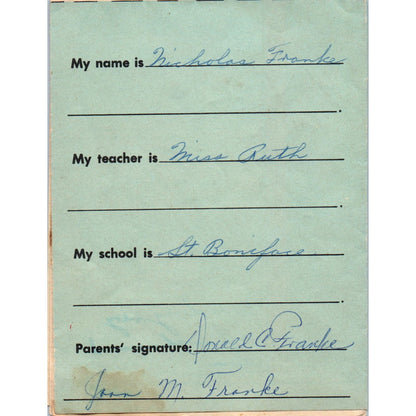 My name is Nicholas Franke
.
My teacher is Miss Ruth
.
My school is St. Boniface
.
Parents' signature: Donald C Franke
Joan M. Franke